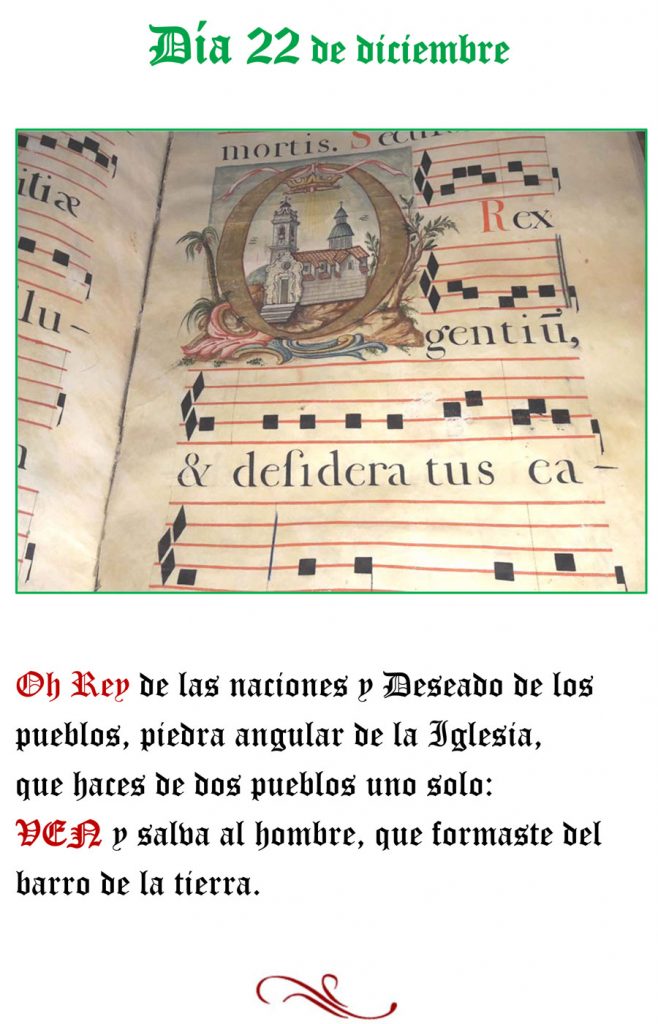 Día 22 de diciembre
mortis. Secu
itiæ
O Rex
lu-
gentiũ,
& deſidera tus ea-
Oh Rey de las naciones y Deseado de los
pueblos, piedra angular de la Iglesia,
que haces de dos pueblos uno solo:
VEN y salva al hombre, que formaste del
barro de la tierra.